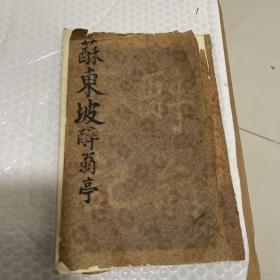 蘇東坡醉翁亭